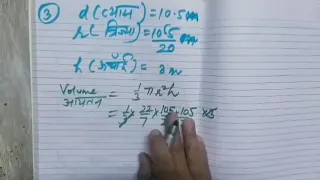 ③ d(व्यास) = 10.5m
r(त्रिज्या) = 105/20
h(ऊँचाई) = 3m
Volume आयतन = 1/3 πr²h
= 1/3 × 22/7 × 105 × 105 ×